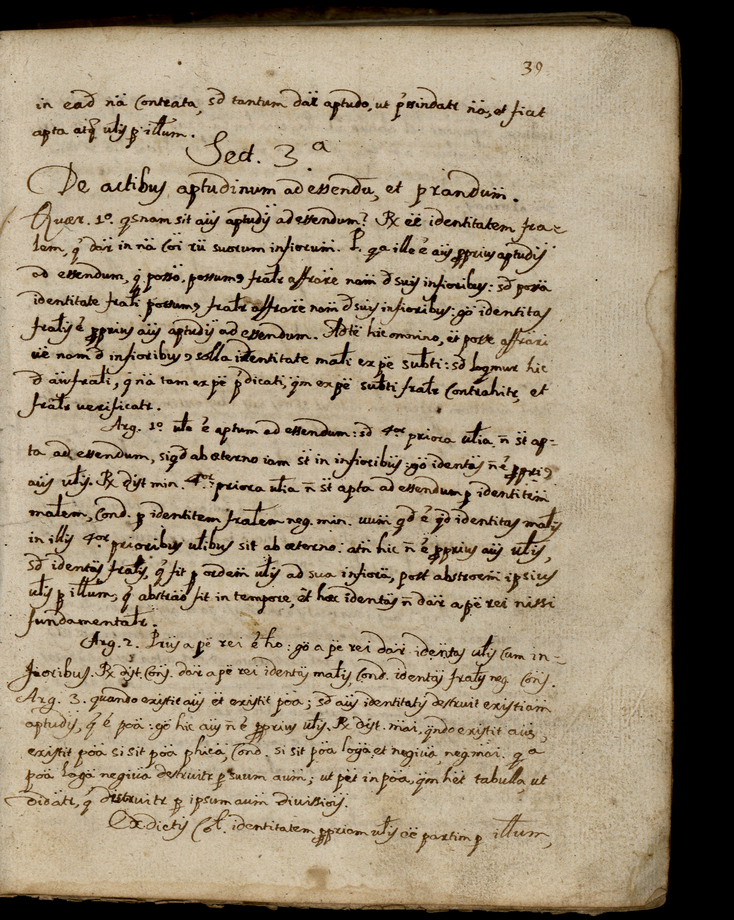 39
in ead nã Contrata, sd tantum dar̃ aptudo, ut p̃sindatr nã, et fiat
apta atq̃ ulis p illum.
Sect. 3ª
De actibus aptudinum ad essendũ, et prandum.
Quær. 1º. qsnam sit aũs aptudis ad essendum? R eẽ identitatem fra=
lem, q̃ dar̃ in nã Coĩ suorum infiorum. P. qa ille ẽ aũs pprius aptudis
ad essendum, q̃ posso, possum fralr affirare nam d suis infioribus: sd
identitate frali possum, fralr affirare nam d suis infioribus: gõ identitas
fralis ẽ pprius aũs aptudis ad essendum. Adte hic omnino, et posse affirari
nam d infioribus solla identitate mali ex pẽ subti: sd loqmur hic
d frali, q̃ nã tam ex pẽ p̃dicati, q̃m ex pẽ subti fralr Contrahitr, et
fralr verificatr.
Arg. 1º ula ẽ aptum ad essendum: sd 4or priora ulia ñ st ap=
ta ad essendum, siqd ab æterno iam st in infioribus: gõ identas ñ ẽ pprius
aũs ulis. R dist min. 4or priora ulia ñ st apta ad essendum p identitem
malem, Cond. p identitem fralem neg. min. uum qd ẽ qd identitas malis
in illis 4or prioribus ulibus sit ab æterno: atñ hic ñ ẽ pprius aũs ulis,
sd identas fralis, q̃ fit p ordem ulis ad sua infiora, post abstroem ipsius
ulis p illum, q̃ abstrao fit in tempore, et hæc identas ñ dar̃ a pẽ rei nissi
fundamentalr.
Arg. 2. Prius a pẽ rei ẽ ho: gõ a pẽ rei dar̃ identas ulis Cum in=
fioribus. R dist. Cons. dar̃ a pẽ rei identis malis, Cond. identis fralis neg. Cons.
Arg. 3. quando existit aũs et existit põa; sd aũs identitatis destruit existiam
aptudis, q̃ ẽ põa: gõ hic aũs ñ ẽ pprius ulis. R dist. mai. qndo existit aũs,
existit põa si sit põa phica, Cond. si sit põa loga, et negiva, neg mai. qª
põa Loga negiva destruitr p suum aum; ut pet in põa, q̃m het tabulla, ut
didatr, q̃ destruitr p ipsum aum divissiois.
Ex dictis Col. identitatem ppriam ulis partim p illum,